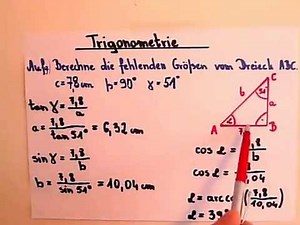 Trigonometrie
Aufg. Berechne die fehlenden Größen vom Dreieck ABC.
c=7,8cm β=90° γ=51°
tan γ = 7,8/a
a = 7,8/tan 51° = 6,32 cm
sin γ = 7,8/b
b = 7,8/sin 51° = 10,04 cm
C
b
51°
a
A
α
B
cos α = 7,8/b
cos α = ,04
α = arccos (7,8/10,04)
α = 39°